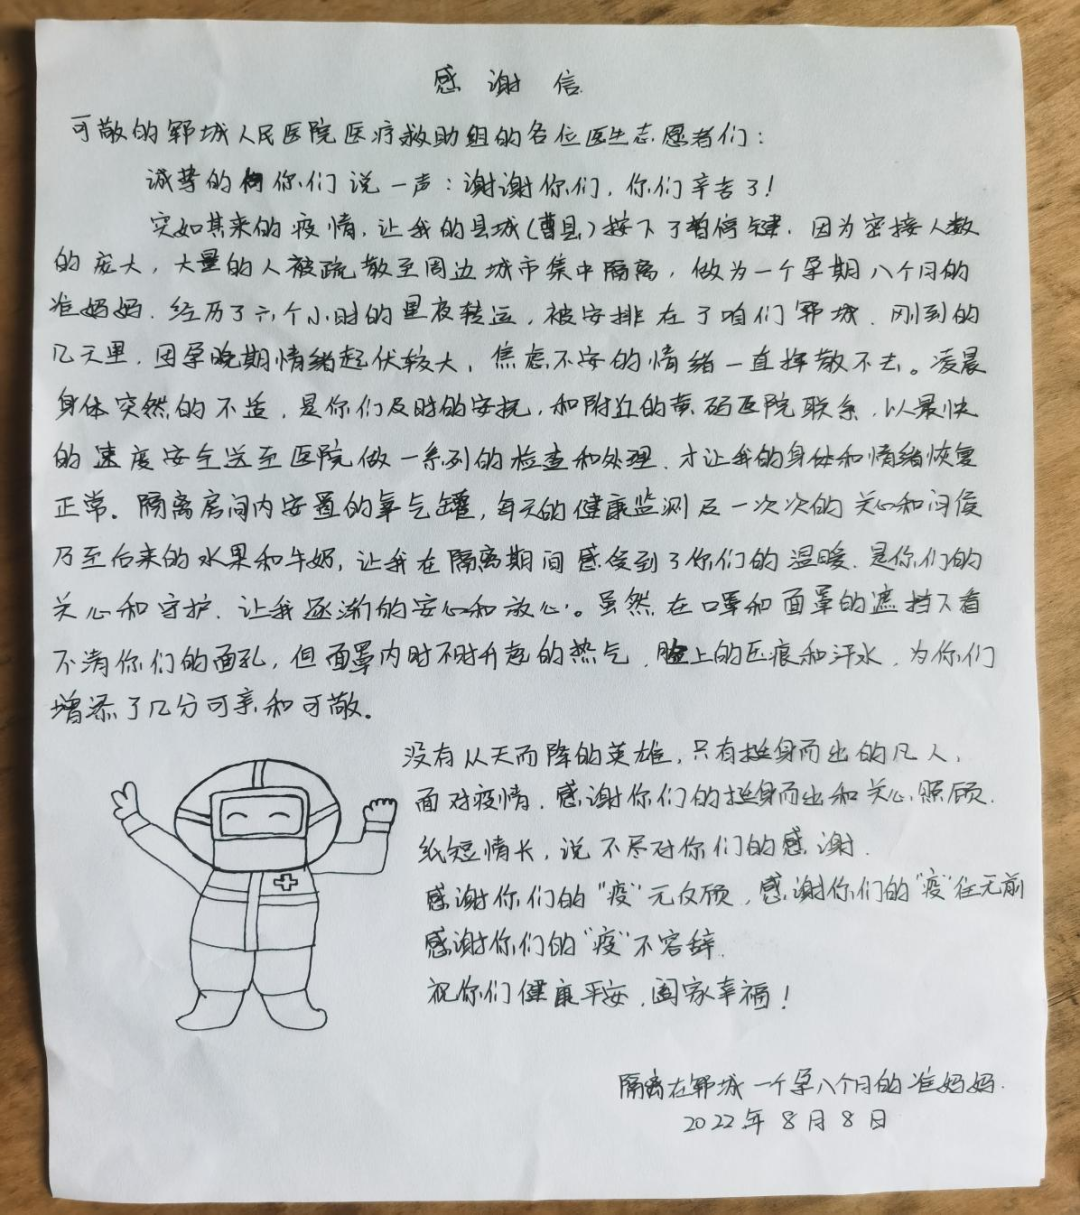 感谢信
可敬的郓城人民医院医疗救助组的各位医生志愿者们：
诚挚的向你们说一声：谢谢你们，你们辛苦了！
突如其来的疫情，让我的县城(曹县)按下了暂停键，因为密接人数
的庞大，大量的人被疏散至周边城市集中隔离，做为一个孕期八个月的
准妈妈，经历了六个小时的星夜转运，被安排在了咱们郓城，刚到的
几天里，因孕晚期情绪起伏较大，焦虑不安的情绪一直挥散不去。凌晨
身体突然的不适，是你们及时的安抚，和附近的黄码医院联系，以最快
的速度安全送至医院做一系列的检查和处理，才让我的身体和情绪恢复
正常。隔离房间内安置的氧气罐，每天的健康监测及一次次的关心和问侯
乃至后来的水果和牛奶，让我在隔离期间感受到了你们的温暖，是你们的
关心和守护，让我逐渐的安心和放心。虽然在口罩和面罩的遮挡下看
不清你们的面孔，但面罩内时不时升起的热气，脸上的压痕和汗水，为你们
增添了几分可亲和可敬。
没有从天而降的英雄，只有挺身而出的凡人，
面对疫情，感谢你们的挺身而出和关心照顾，
纸短情长，说不尽对你们的感谢．
感谢你们的“疫”无反顾，感谢你们的“疫”往无前
感谢你们的“疫”不容辞．
祝你们健康平安，阖家幸福！
隔离在郓城一个孕八个月的准妈妈．
2022年8月8日